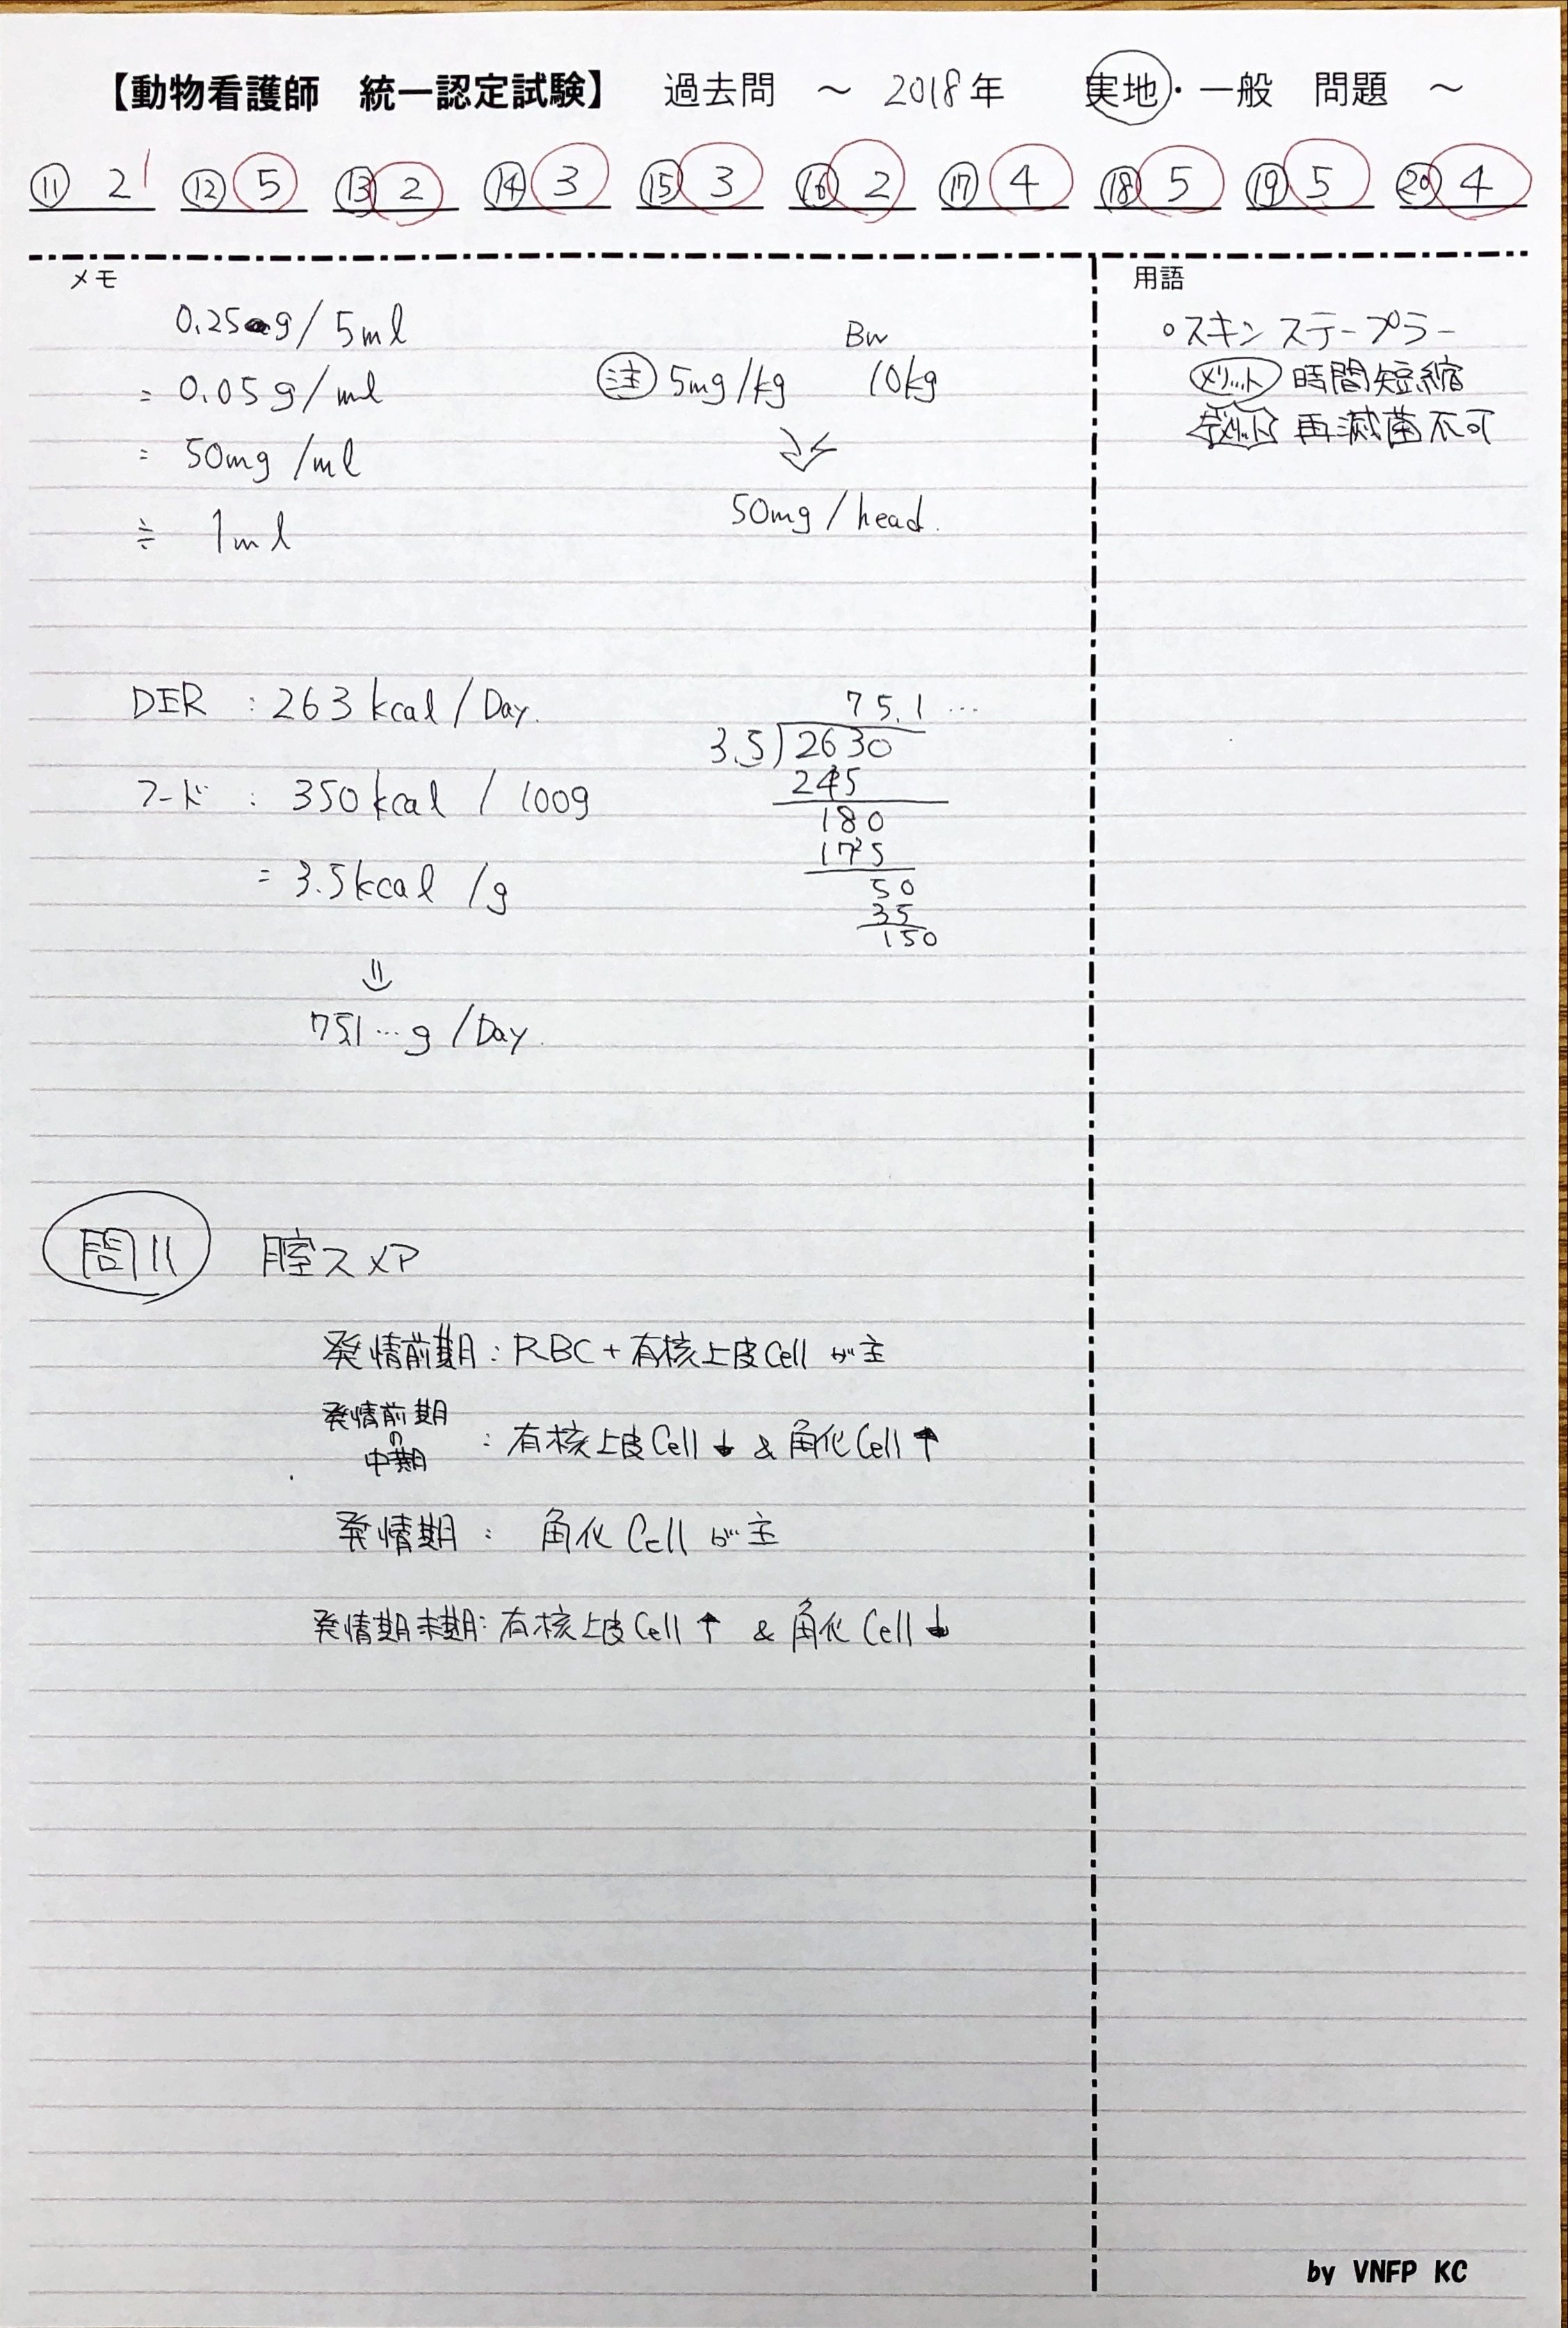 【動物看護師　統一認定試験】　過去問　～　2018年　実地・一般　問題　～
⑪ 2 1 ⑫ 5 ⑬ 2 ⑭ 3 ⑮ 3 ⑯ 2 ⑰ 4 ⑱ 5 ⑲ 5 ⑳ 4
メモ
0.25g/5ml
= 0.05g/ml
= 50mg/ml
≒ 1ml
Bw
注 5mg/kg 10kg
50mg/head.
DER : 263kcal/Day.
フード : 350kcal/100g
= 3.5kcal/g
⇓
75.1…g/Day.
75.1…
3.5)2630
245
180
175
50
35
150
問11 腟スメア
発情前期：RBC＋有核上皮Cellが主
発情前期の中期：有核上皮Cell↓ & 角化Cell↑
発情期： 角化Cellが主
発情期末期：有核上皮Cell↑ & 角化Cell↓
用語
○スキンステープラー
メリット 時間短縮
デメリット 再滅菌不可
by VNFP KC